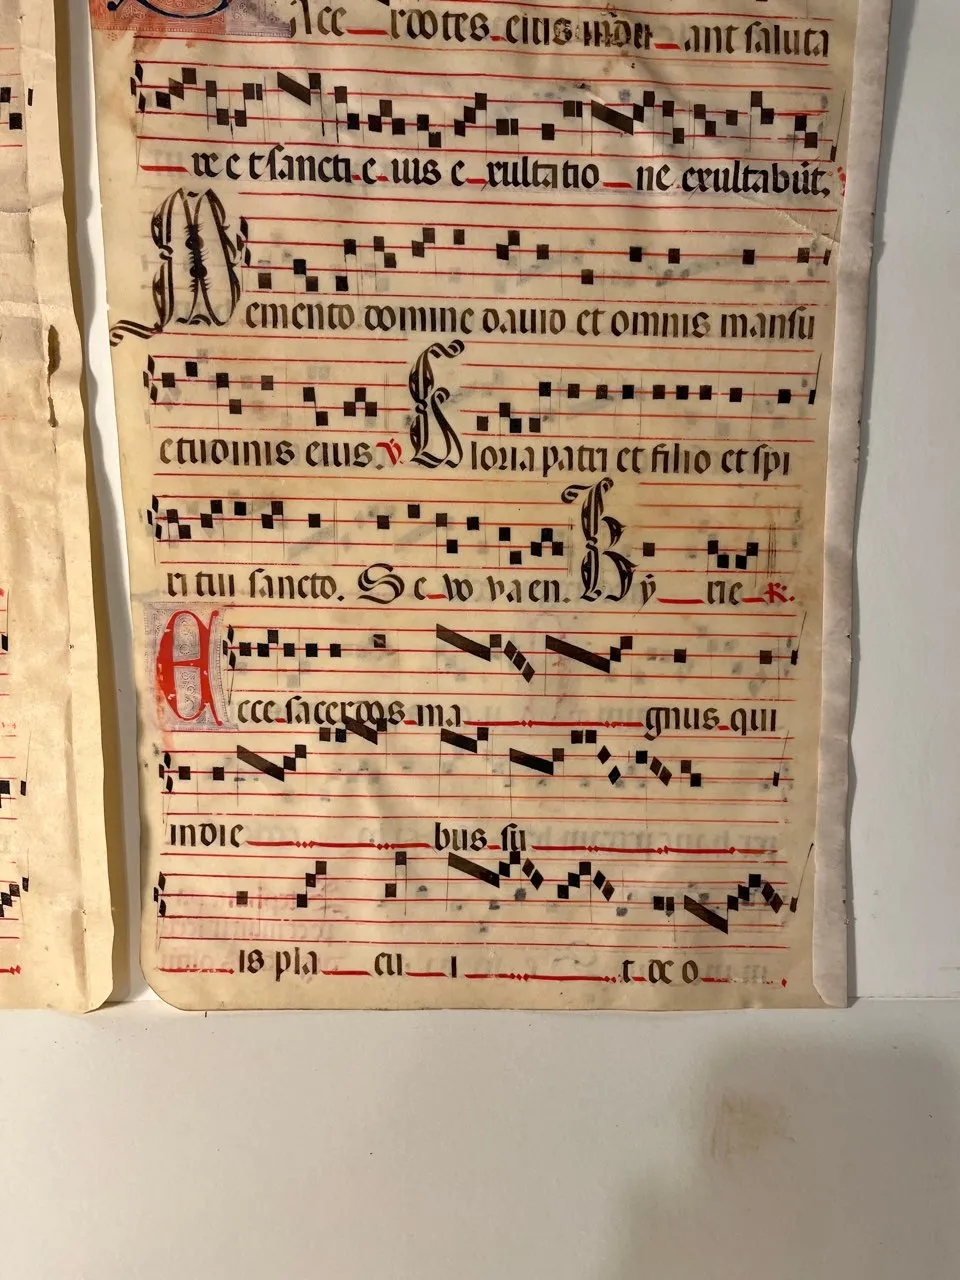 Ace rdotes eius indu ant saluta
re et sancti e ius e xultatio ne exultabūt.
Memento domine dauid et omnis mansu
etudinis eius. ℣. Gloria patri et filio et spi
ritui sancto. Se vo va en. Ky rie ℟.
Ecce sacerdos ma gnus qui
in die bus su
is pla cu i t de o